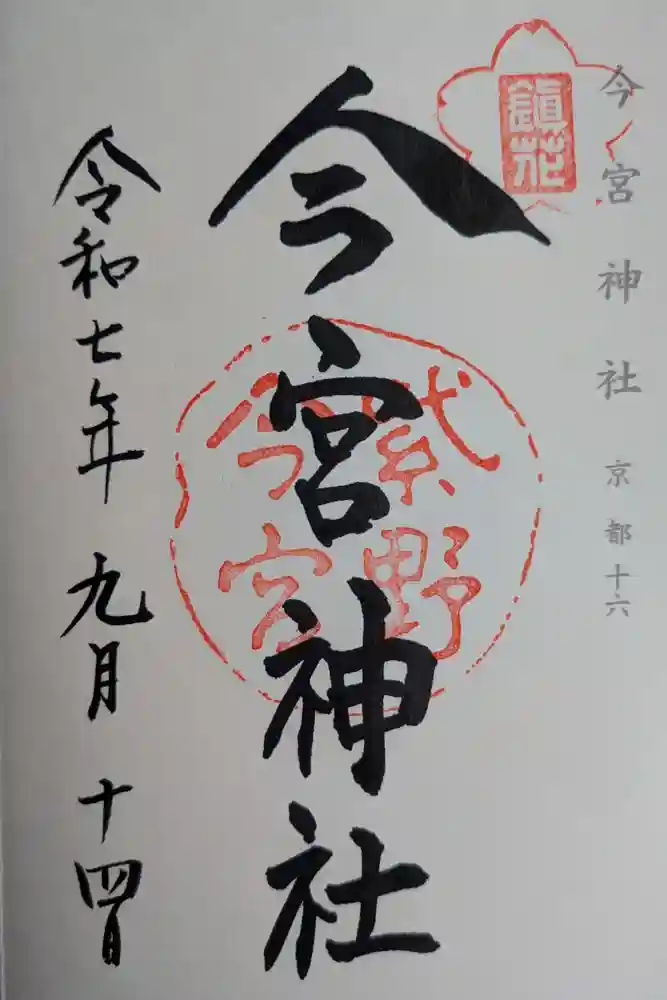 今宮神社 京都十六
鎭花
今宮神社
紫野
今宮
令和七年 九月 十四日